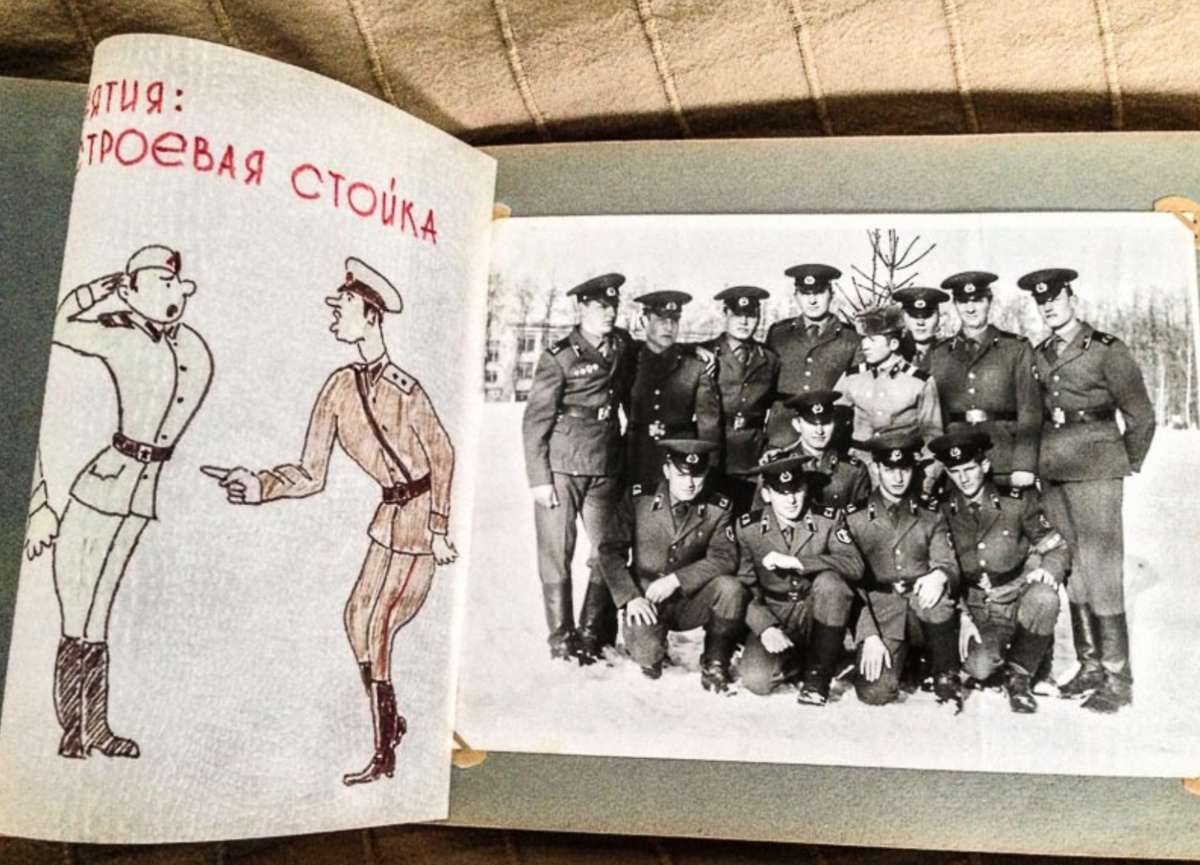 ЯТИЯ:
СТРОЕВАЯ СТОЙКА